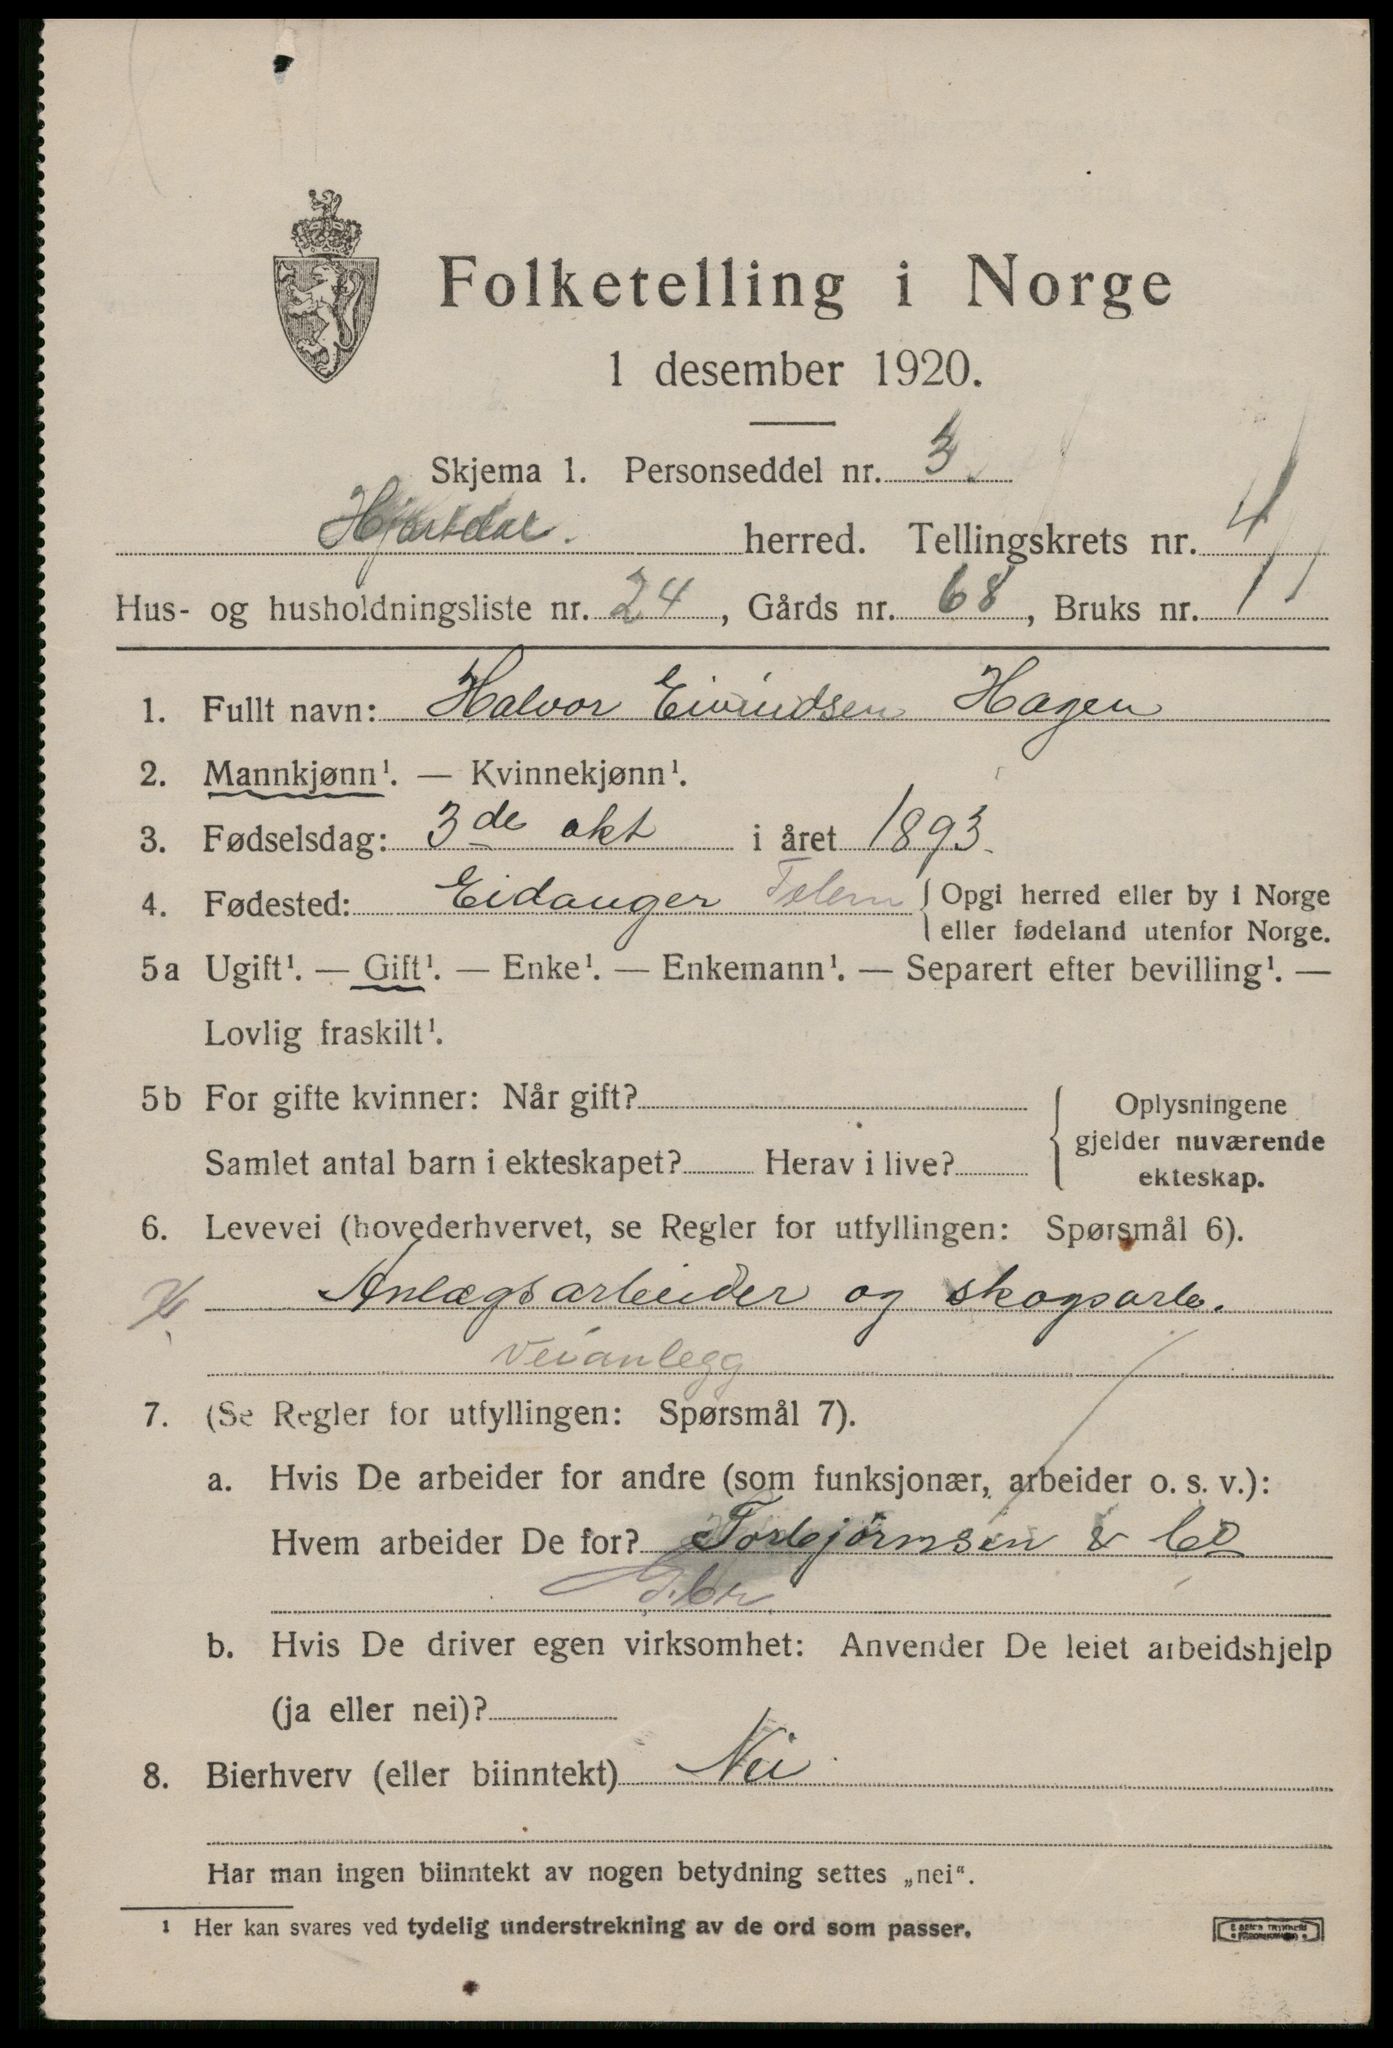 Folketelling i Norge
1 desember 1920.
Skjema 1. Personseddel nr. 3
Hjartdal. herred. Tellingskrets nr. 4
Hus- og husholdningsliste nr. 24, Gårds nr. 68, Bruks nr. 1
1. Fullt navn: Halvor Eivindsen Hagen
2. Mannkjønn¹. — Kvinnekjønn¹.
3. Fødselsdag: 3de okt i året 1893.
4. Fødested: Eidanger Telem {Opgi herred eller by i Norge
eller fødeland utenfor Norge.
5a Ugift¹. — Gift¹. — Enke¹. — Enkemann¹. — Separert efter bevilling¹. —
Lovlig fraskilt¹.
5b For gifte kvinner: Når gift?
Samlet antal barn i ekteskapet? Herav i live?
Oplysningene
gjelder nuværende
ekteskap.
6. Levevei (hovederhvervet, se Regler for utfyllingen: Spørsmål 6).
Anlægsarbeider og skogsarb.
Veianlegg
7. (Se Regler for utfyllingen: Spørsmål 7).
a. Hvis De arbeider for andre (som funksjonær, arbeider o. s. v.):
Hvem arbeider De for? Torbjörnsen & Co
b. Hvis De driver egen virksomhet: Anvender De leiet arbeidshjelp
(ja eller nei)?
8. Bierhverv (eller biinntekt) Nei
Har man ingen biinntekt av nogen betydning settes „nei“.
¹ Her kan svares ved tydelig understrekning av de ord som passer.